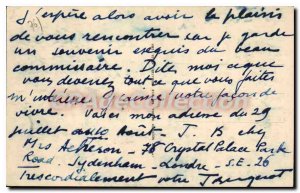 J'espère alors avoir le plaisir
de vous rencontrer car je garde
un souvenir exquis du beau
commissaire. Dites moi ce que
vous devenez tout ce que vous faites
m'intéresse ainsi votre façon de
vivre. Voici mon adresse du 29
juillet au 10 Août - T. B chez
Mrs - 78 Crystal Palace Park
Road. Sydenham - Londre - S.E. 26
Très cordialement votre